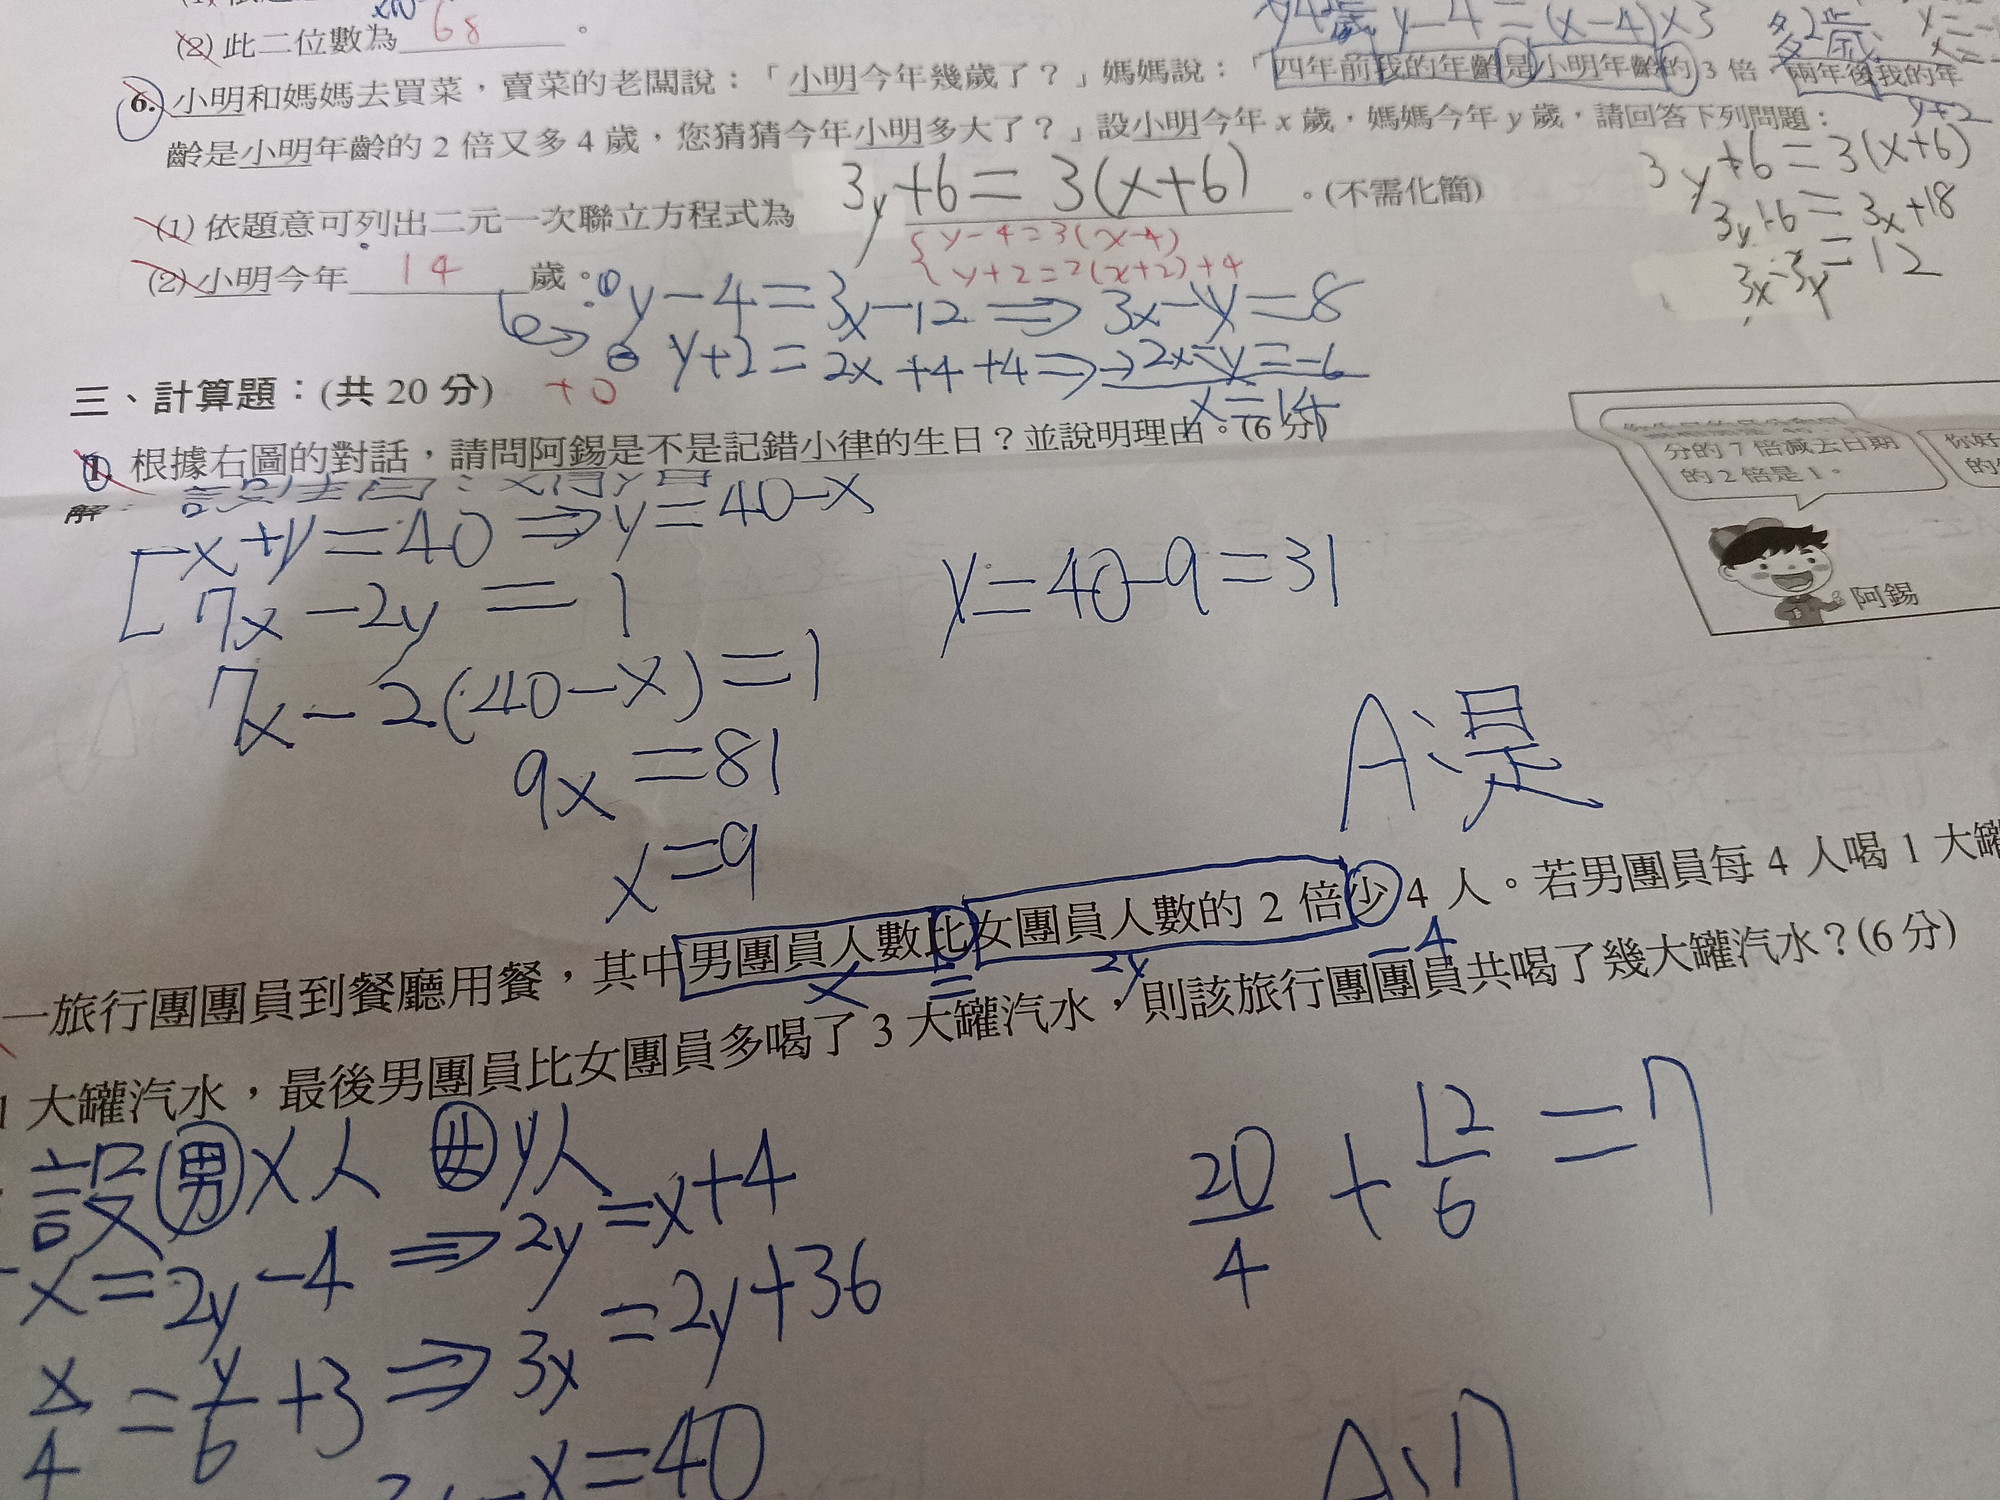 (2) 此二位數為 68 。
y-4=(x-4)×3
6. 小明和媽媽去買菜，賣菜的老闆說：「小明今年幾歲了？」媽媽說：「四年前我的年齡是小明年齡的3倍，兩年後我的年
y+2
齡是小明年齡的2倍又多4歲，您猜猜今年小明多大了？」設小明今年 x 歲，媽媽今年 y 歲，請回答下列問題：
(1) 依題意可列出二元一次聯立方程式為 3y+6=3(x+6) 。(不需化簡)
3y+6=3(x+6)
3y+6=3x+18
3x-3y=12
{ y-4=3(x-4)
{ y+2=2(x+2)+4
(2) 小明今年 14 歲。
① y-4=3x-12⇒3x-y=8
y+2=2x+4+4⇒2x-y=-6
x=14
三、計算題：(共 20 分) +0
1. 根據右圖的對話，請問阿錫是不是記錯小律的生日？並說明理由。(6 分)
解：
x+y=40⇒y=40-x
7x-2y=1
7x-2(40-x)=1
9x=81
x=9
y=40-9=31
A:是
分的7倍減去日期
的2倍是1。
你好
的
阿錫
一旅行團團員到餐廳用餐，其中男團員人數比女團員人數的 2 倍少 4 人。若男團員每 4 人喝 1 大罐
x = 2y -4
1 大罐汽水，最後男團員比女團員多喝了 3 大罐汽水，則該旅行團團員共喝了幾大罐汽水？(6 分)
設男x人 女y人
x=2y-4⇒2y=x+4
x/4=y/6+3⇒3x=2y+36
x=40
20/4+12/6=7
A:7